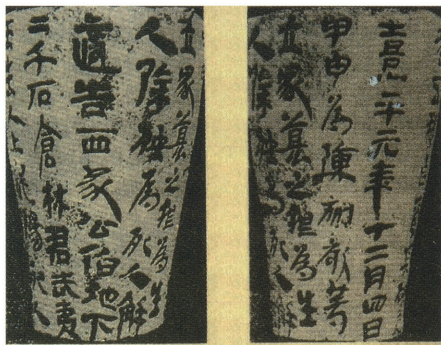 熹平元年十二月四日
甲申為陳叔敬等
立冢墓之根為生
人除殃為死人
立冢墓之根為生
人除殃為死人解
適告西冢公伯地下
二千石倉林君武夷